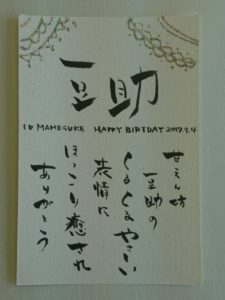 豆助
10 MAMESUKE HAPPY BIRTDAY 2017.9.4
甘えん坊
豆助の
くるくるやさしい
表情に
ほっこり癒され
ありがとう